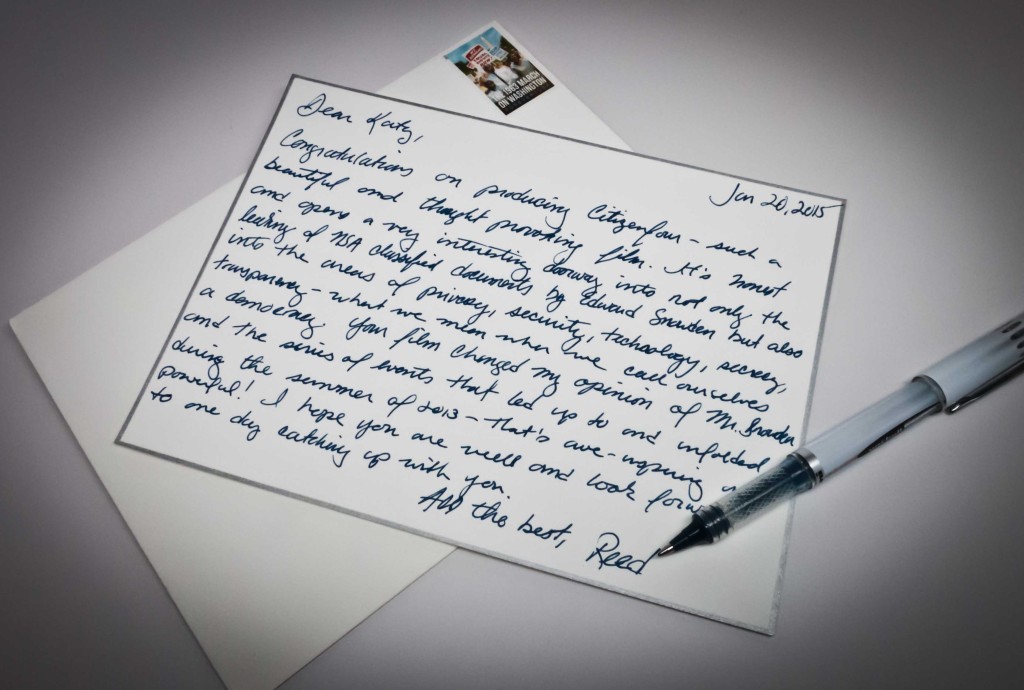 THE 1963 MARCH
ON WASHINGTON
Jan 20, 2015
Dear Katy,
Congratulations on producing Citizenfour - such a
beautiful and thought provoking film. It's honest
and opens a very interesting doorway into not only the
leaking of NSA classified documents by Edward Snowden but also
into the areas of privacy, security, technology, secrecy,
transparency - what we mean when we call ourselves
a democracy. Your film changed my opinion of Mr. Snowden
and the series of events that led up to and unfolded
during the summer of 2013 - that's awe-inspiring
powerful! I hope you are well and look
to one day catching up with you.
All the best,
Reed